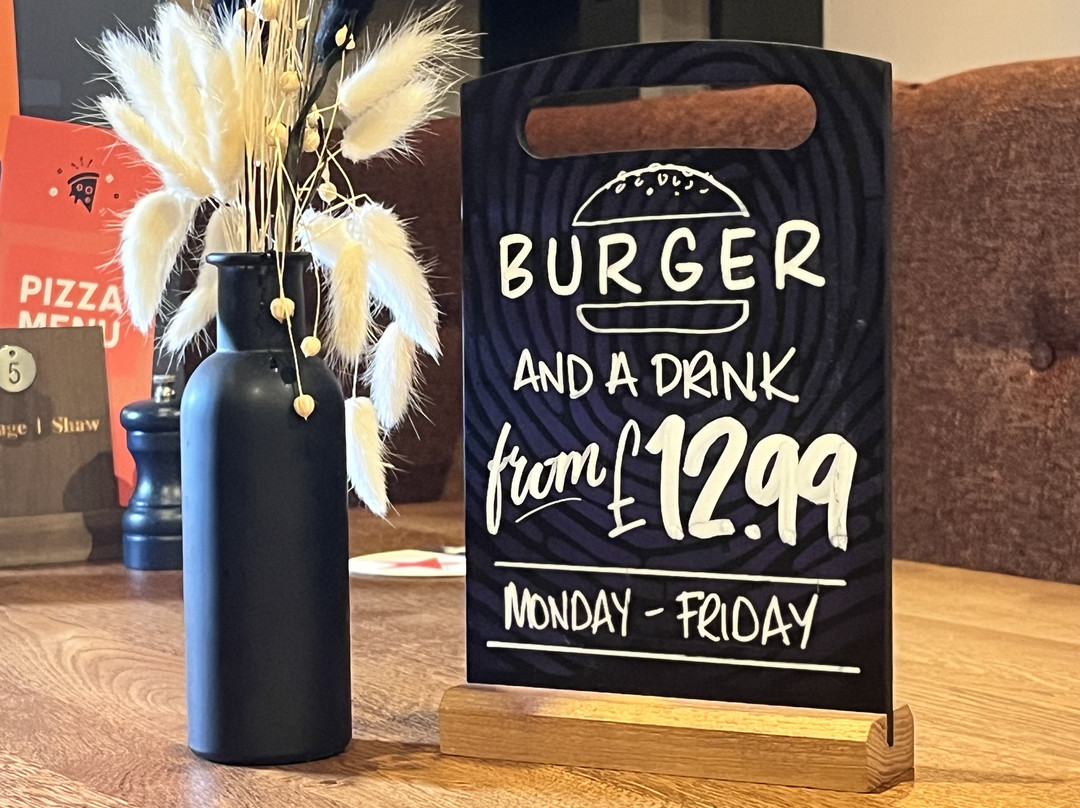 PIZZA
MENU
5
Shaw
BURGER
AND A DRINK
from £12.99
MONDAY - FRIDAY